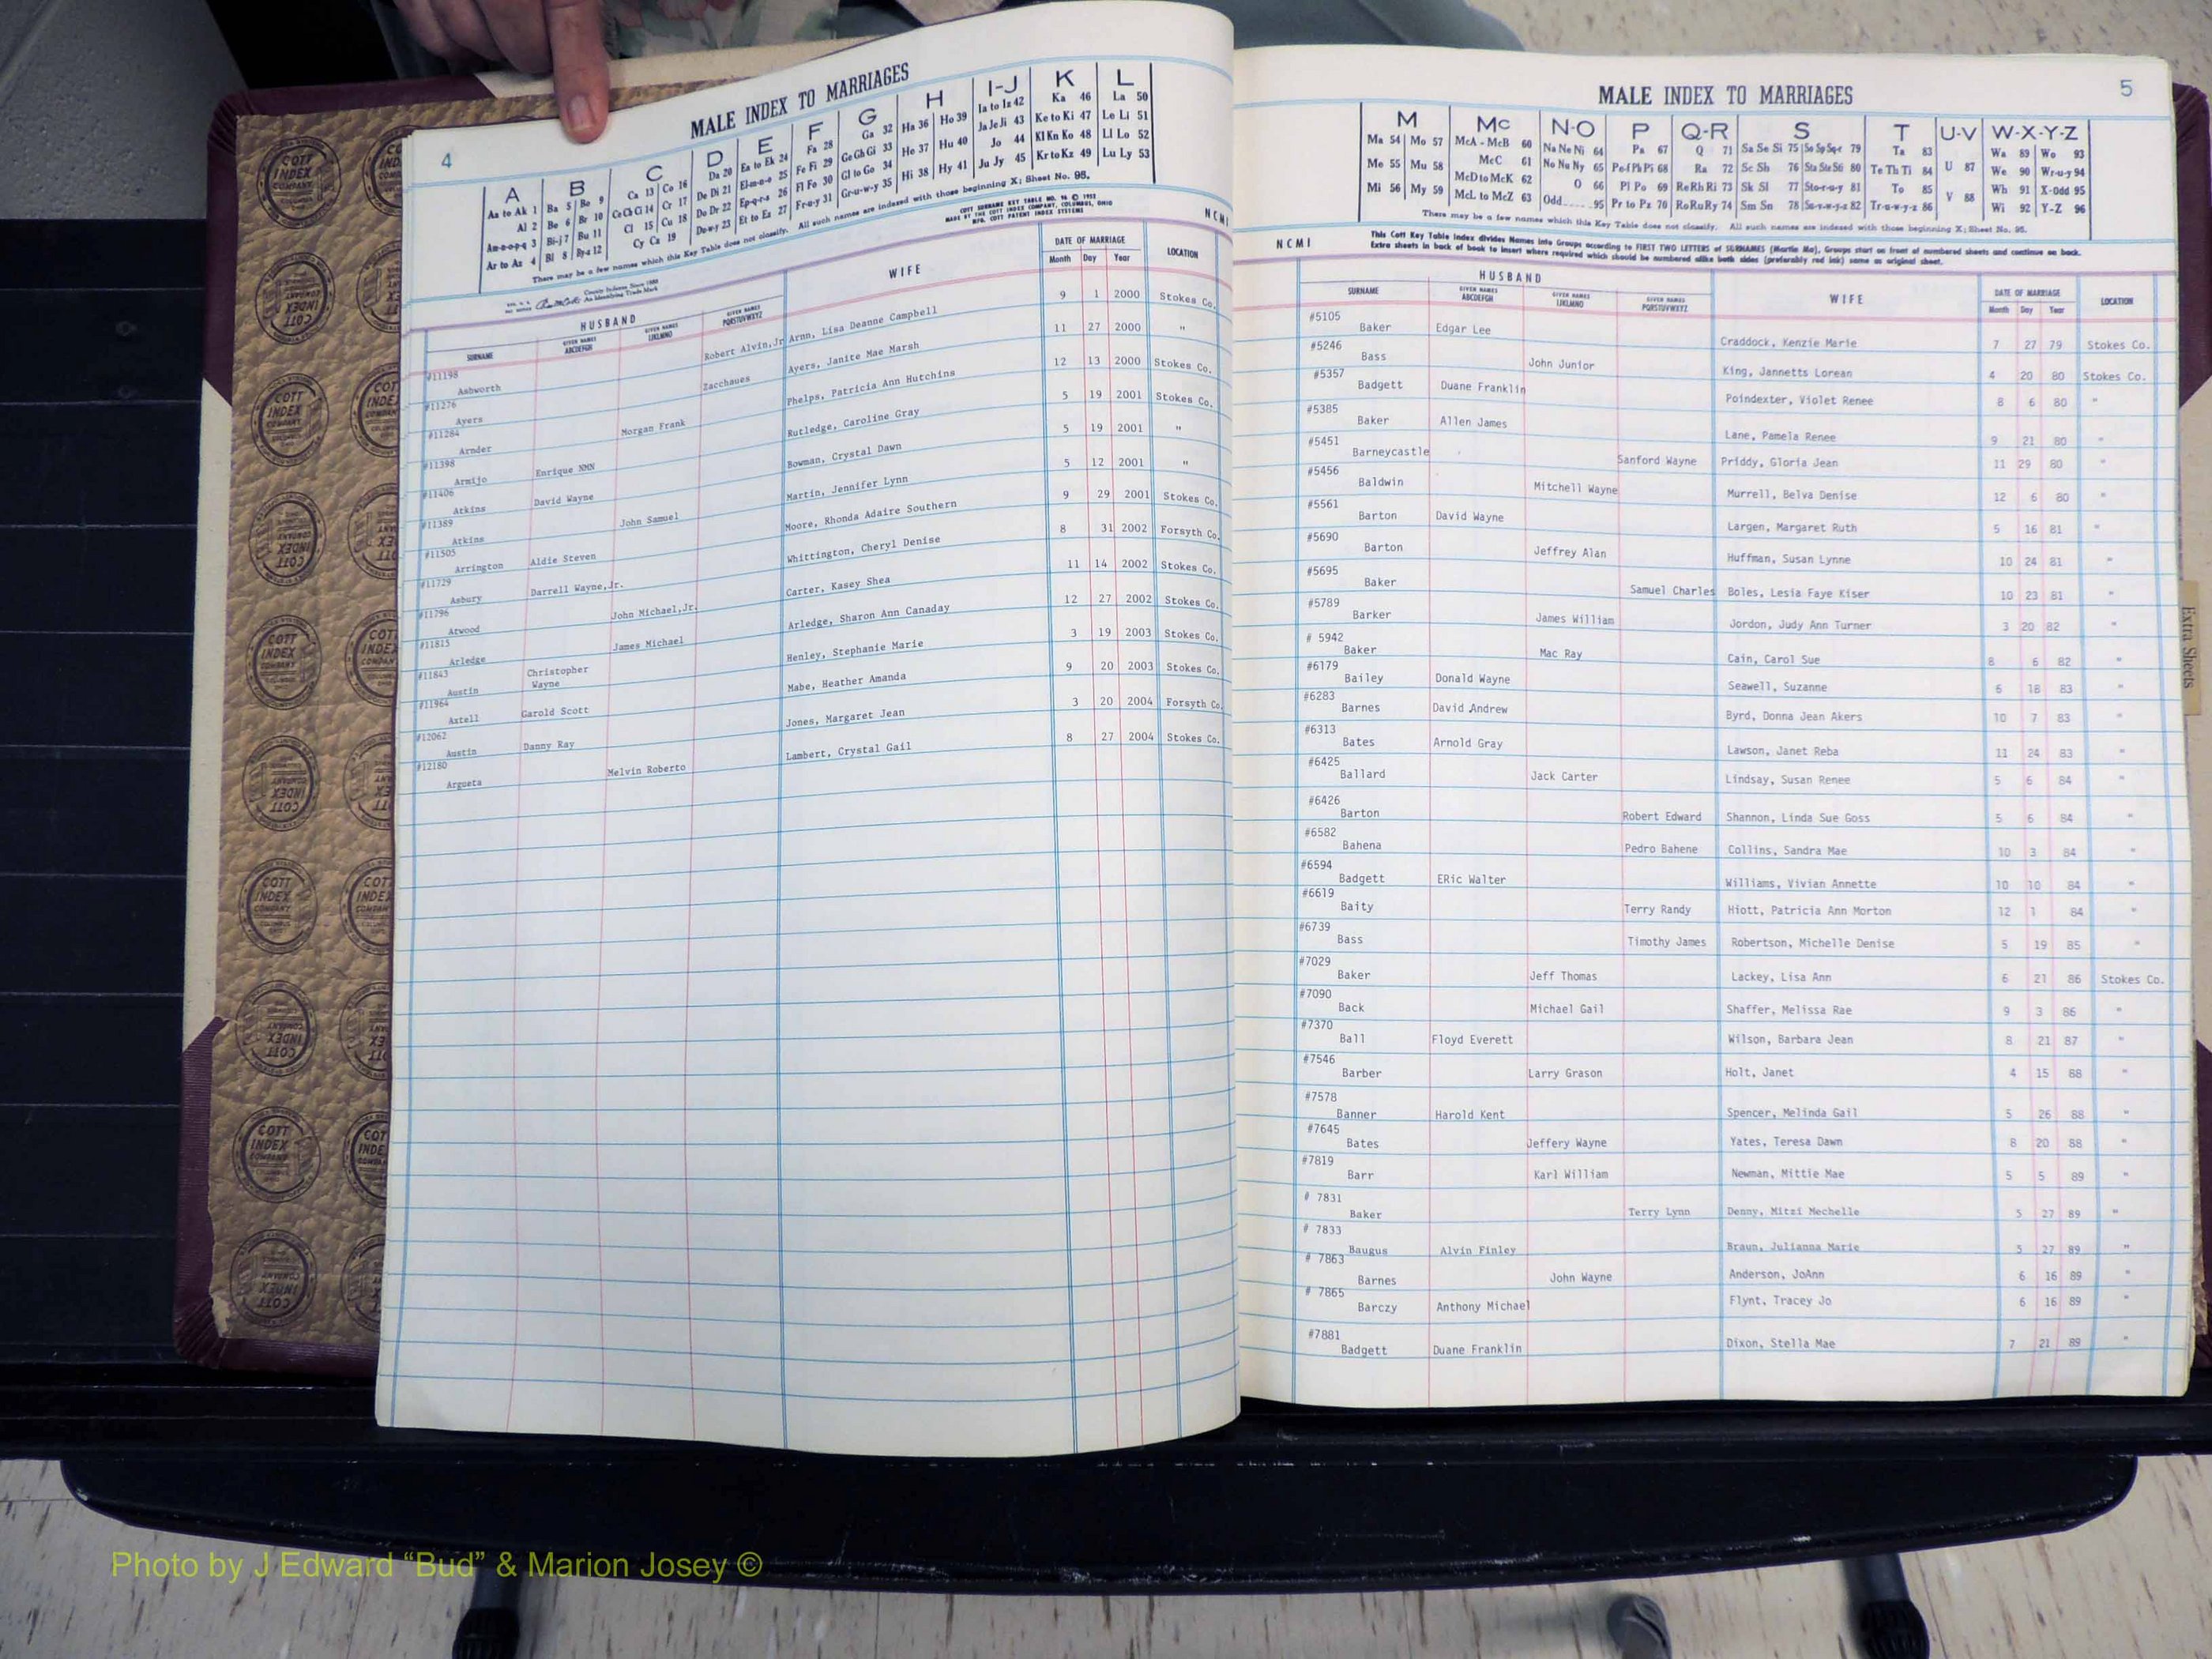 4
MALE INDEX TO MARRIAGES
A B C D E F G H I-J K L
Aa to Ak 1 | Ba 5 | Bo 9 | Ca 13 | Co 16 | Da 20 | Ea to Ek 24 | Fa 28 | Ga 32 | Ha 36 | Ho 39 | Ia to Iz 42 | Ka 46 | La 50
Al 2 | Be 6 | Br 10 | Ce Ch Ci 14 | Cr 17 | De Di 21 | El-m-n-o 25 | Fe Fi 29 | Ge Gh Gi 33 | He 37 | Hu 40 | Ja Je Ji 43 | Ke to Ki 47 | Le Li 51
Am-n-o-p-q 3 | Bi-j 7 | Bu 11 | Cl 15 | Cu 18 | Do Dr 22 | Ep-q-r-s 26 | Fl Fo 30 | Gl to Go 34 | Hi 38 | Hy 41 | Jo 44 | Kl Kn Ko 48 | Ll Lo 52
Ar to Az 4 | Bl 8 | By-z 12 | Cy Cz 19 | Du-w-y 23 | Et to Ez 27 | Fr-u-y 31 | Gr-u-w-y 35 | Ju Jy 45 | Kr to Kz 49 | Lu Ly 53
There may be a few names which this Key Table does not classify. All such names are indexed with those beginning X; Sheet No. 95.
COTT SURNAME KEY TABLE NO. 96 © 1952
MADE BY THE COTT INDEX COMPANY, COLUMBUS, OHIO
MFG. COTT PATENT INDEX SYSTEMS
County Indexes Since 1888
An Identifying Trade Mark
HUSBAND WIFE DATE OF MARRIAGE LOCATION
SURNAME GIVEN NAMES ABCDEFGH GIVEN NAMES IJKLMNO GIVEN NAMES PQRSTUVWXYZ Month Day Year
#11198 Ashworth Robert Alvin,Jr Arnn, Lisa Deanne Campbell 9 1 2000 Stokes Co.
#11276 Ayers Zacchaues Ayers, Janite Mae Marsh 11 27 2000 "
#11284 Arnder Morgan Frank Phelps, Patricia Ann Hutchins 12 13 2000 Stokes Co.
#11398 Armijo Enrique NMN Rutledge, Caroline Gray 5 19 2001 Stokes Co.
#11406 Atkins David Wayne Bowman, Crystal Dawn 5 19 2001 "
#11389 Atkins John Samuel Martin, Jennifer Lynn 5 12 2001 "
#11505 Arrington Aldie Steven Moore, Rhonda Adaire Southern 9 29 2001 Stokes Co.
#11729 Asbury Darrell Wayne,Jr. Whittington, Cheryl Denise 8 31 2002 Forsyth Co.
#11796 Atwood John Michael,Jr. Carter, Kasey Shea 11 14 2002 Stokes Co.
#11815 Arledge James Michael Arledge, Sharon Ann Canaday 12 27 2002 Stokes Co.
#11843 Austin Christopher Wayne Henley, Stephanie Marie 3 19 2003 Stokes Co.
#11964 Axtell Garold Scott Mabe, Heather Amanda 9 20 2003 Stokes Co.
#12062 Austin Danny Ray Jones, Margaret Jean 3 20 2004 Forsyth Co.
#12180 Argueta Melvin Roberto Lambert, Crystal Gail 8 27 2004 Stokes Co.
5
MALE INDEX TO MARRIAGES
M Mc N-O P Q-R S T U-V W-X-Y-Z
Ma 54 | Mo 57 | McA - McB 60 | Na Ne Ni 64 | Pa 67 | Q 71 | Sa Se Si 75 | So Sp Sq-r 79 | Ta 83 | U 87 | Wa 89 | Wo 93
Me 55 | Mu 58 | McC 61 | No Nu Ny 65 | Pe-f Ph Pi 68 | Ra 72 | Sc Sh 76 | Sta Ste Sti 80 | Te Th Ti 84 | We 90 | Wr-u-y 94
Mi 56 | My 59 | McD to McK 62 | O 66 | Pl Po 69 | Re Rh Ri 73 | Sk Sl 77 | Sto-r-u-y 81 | To 85 | V 88 | Wh 91 | X-Odd 95
McL to McZ 63 | Odd.....95 | Pr to Pz 70 | Ro Ru Ry 74 | Sm Sn 78 | Su-v-w-y-z 82 | Tr-u-w-y-z 86 | Wi 92 | Y-Z 96
There may be a few names which this Key Table does not classify. All such names are indexed with those beginning X; Sheet No. 95.
NCMI This Cott Key Table Index divides Names into Groups according to FIRST TWO LETTERS of SURNAMES (Martin Ma), Groups start on front of numbered sheets and continue on back.
Extra sheets in back of book to insert where required which should be numbered alike both sides (preferably red ink) same as original sheet.
HUSBAND WIFE DATE OF MARRIAGE LOCATION
SURNAME GIVEN NAMES ABCDEFGH GIVEN NAMES IJKLMNO GIVEN NAMES PQRSTUVWXYZ Month Day Year
#5105 Baker Edgar Lee Craddock, Kenzie Marie 7 27 79 Stokes Co.
#5246 Bass John Junior King, Jannetts Lorean 4 20 80 Stokes Co.
#5357 Badgett Duane Franklin Poindexter, Violet Renee 8 6 80 "
#5385 Baker Allen James Lane, Pamela Renee 9 21 80 "
#5451 Barneycastle Sanford Wayne Priddy, Gloria Jean 11 29 80 "
#5456 Baldwin Mitchell Wayne Murrell, Belva Denise 12 6 80 "
#5561 Barton David Wayne Largen, Margaret Ruth 5 16 81 "
#5690 Barton Jeffrey Alan Huffman, Susan Lynne 10 24 81 "
#5695 Baker Samuel Charles Boles, Lesia Faye Kiser 10 23 81 "
#5789 Barker James William Jordon, Judy Ann Turner 3 20 82 "
# 5942 Baker Mac Ray Cain, Carol Sue 8 6 82 "
#6179 Bailey Donald Wayne Seawell, Suzanne 6 18 83 "
#6283 Barnes David Andrew Byrd, Donna Jean Akers 10 7 83 "
#6313 Bates Arnold Gray Lawson, Janet Reba 11 24 83 "
#6425 Ballard Jack Carter Lindsay, Susan Renee 5 6 84 "
#6426 Barton Robert Edward Shannon, Linda Sue Goss 5 6 84 "
#6582 Bahena Pedro Bahene Collins, Sandra Mae 10 3 84 "
#6594 Badgett ERic Walter Williams, Vivian Annette 10 10 84 "
#6619 Baity Terry Randy Hiott, Patricia Ann Morton 12 1 84 "
#6739 Bass Timothy James Robertson, Michelle Denise 5 19 85 "
#7029 Baker Jeff Thomas Lackey, Lisa Ann 6 21 86 Stokes Co.
#7090 Back Michael Gail Shaffer, Melissa Rae 9 3 86 "
#7370 Ball Floyd Everett Wilson, Barbara Jean 8 21 87 "
#7546 Barber Larry Grason Holt, Janet 4 15 88 "
#7578 Banner Harold Kent Spencer, Melinda Gail 5 26 88 "
#7645 Bates Jeffery Wayne Yates, Teresa Dawn 8 20 88 "
#7819 Barr Karl William Newman, Mittie Mae 5 5 89 "
# 7831 Baker Terry Lynn Denny, Mitzi Mechelle 5 27 89 "
# 7833 Baugus Alvin Finley Braun, Julianna Marie 5 27 89 "
# 7863 Barnes John Wayne Anderson, JoAnn 6 16 89 "
# 7865 Barczy Anthony Michael Flynt, Tracey Jo 6 16 89 "
#7881 Badgett Duane Franklin Dixon, Stella Mae 7 21 89 "
Extra Sheets
COTT INDEX COMPANY
Photo by J Edward “Bud” & Marion Josey ©